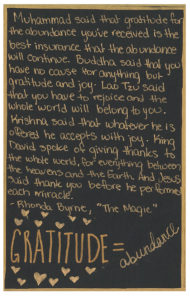 Muhammad said that gratitude for
the abundance you've received is the
best insurance that the abundance
will continue. Buddha said that you
have no cause for anything but
gratitude and joy. Lao Tzu said
that you have to rejoice and the
whole world will belong to you.
Krishna said that whatever he is
offered he accepts with joy. King
David spoke of giving thanks to
the whole world, for everything between
the heavens and the Earth. And Jesus
said thank you before he performed
each miracle.
-Rhonda Byrne, "The Magic"
GRATITUDE = abundance